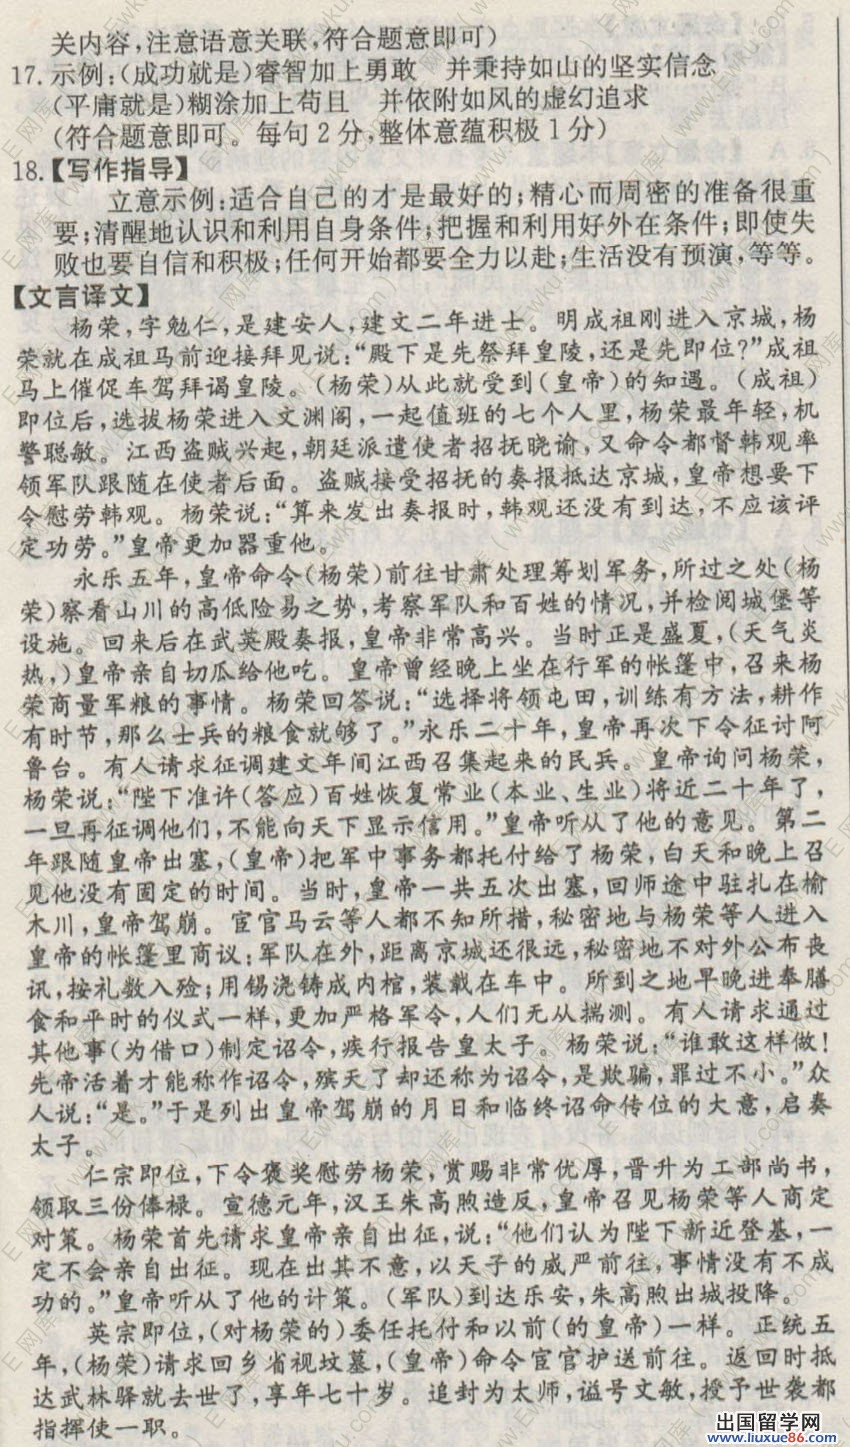 关内容,注意语意关联,符合题意即可)
17. 示例:(成功就是)睿智加上勇敢 并秉持如山的坚实信念
(平庸就是)糊涂加上苟且 并依附如风的虚幻追求
(符合题意即可。每句2分,整体意蕴积极1分)
18.【写作指导】
立意示例:适合自己的才是最好的;精心而周密的准备很重
要;清醒地认识和利用自身条件;把握和利用好外在条件;即使失
败也要自信和积极;任何开始都要全力以赴;生活没有预演,等等。
【文言译文】
杨荣,字勉仁,是建安人,建文二年进士。明成祖刚进入京城,杨
荣就在成祖马前迎接拜见说:“殿下是先祭拜皇陵,还是先即位?”成祖
马上催促车驾拜谒皇陵。(杨荣)从此就受到(皇帝)的知遇。(成祖)
即位后,选拔杨荣进入文渊阁,一起值班的七个人里,杨荣最年轻,机
警聪敏。江西盗贼兴起,朝廷派遣使者招抚晓谕,又命令都督韩观率
领军队跟随在使者后面。盗贼接受招抚的奏报抵达京城,皇帝想要下
令慰劳韩观。杨荣说:“算来发出奏报时,韩观还没有到达,不应该评
定功劳。”皇帝更加器重他。
永乐五年,皇帝命令(杨荣)前往甘肃处理筹划军务,所过之处(杨
荣)察看山川的高低险易之势,考察军队和百姓的情况,并检阅城堡等
设施。回来后在武英殿奏报,皇帝非常高兴。当时正是盛夏,(天气炎
热,)皇帝亲自切瓜给他吃。皇帝曾经晚上坐在行军的帐篷中,召来杨
荣商量军粮的事情。杨荣回答说:“选择将领屯田,训练有方法,耕作
有时节,那么士兵的粮食就够了。”永乐二十年,皇帝再次下令征讨阿
鲁台。有人请求征调建文年间江西召集起来的民兵。皇帝询问杨荣,
杨荣说:“陛下准许(答应)百姓恢复常业(本业、生业)将近二十年了,
一旦再征调他们,不能向天下显示信用。”皇帝听从了他的意见。第二
年跟随皇帝出塞,(皇帝)把军中事务都托付给了杨荣,白天和晚上召
见他没有固定的时间。当时,皇帝一共五次出塞,回师途中驻扎在榆
木川,皇帝驾崩。宦官马云等人都不知所措,秘密地与杨荣等人进入
皇帝的帐篷里商议:军队在外,距离京城还很远,秘密地不对外公布丧
讯,按礼数入殓;用锡浇铸成内棺,装载在车中。所到之地早晚进奉膳
食和平时的仪式一样,更加严格军令,人们无从揣测。有人请求通过
其他事(为借口)制定诏令,疾行报告皇太子。杨荣说:“谁敢这样做!
先帝活着才能称作诏令,殡天了却还称为诏令,是欺骗,罪过不小。”众
人说:“是。”于是列出皇帝驾崩的月日和临终诏命传位的大意,启奏
太子。
仁宗即位,下令褒奖慰劳杨荣,赏赐非常优厚,晋升为工部尚书,
领取三份俸禄。宣德元年,汉王朱高煦造反,皇帝召见杨荣等人商定
对策。杨荣首先请求皇帝亲自出征,说:“他们认为陛下新近登基,一
定不会亲自出征。现在出其不意,以天子的威严前往,事情没有不成
功的。”皇帝听从了他的计策。(军队)到达乐安,朱高煦出城投降。
英宗即位,(对杨荣的)委任托付和以前(的皇帝)一样。正统五
年,(杨荣)请求回乡省视坟墓,(皇帝)命令宦官护送前往。返回时抵
达武林驿就去世了,享年七十岁。追封为太师,谥号文敏,授予世袭都
指挥使一职。
出国留学网
www.liuxue86.com